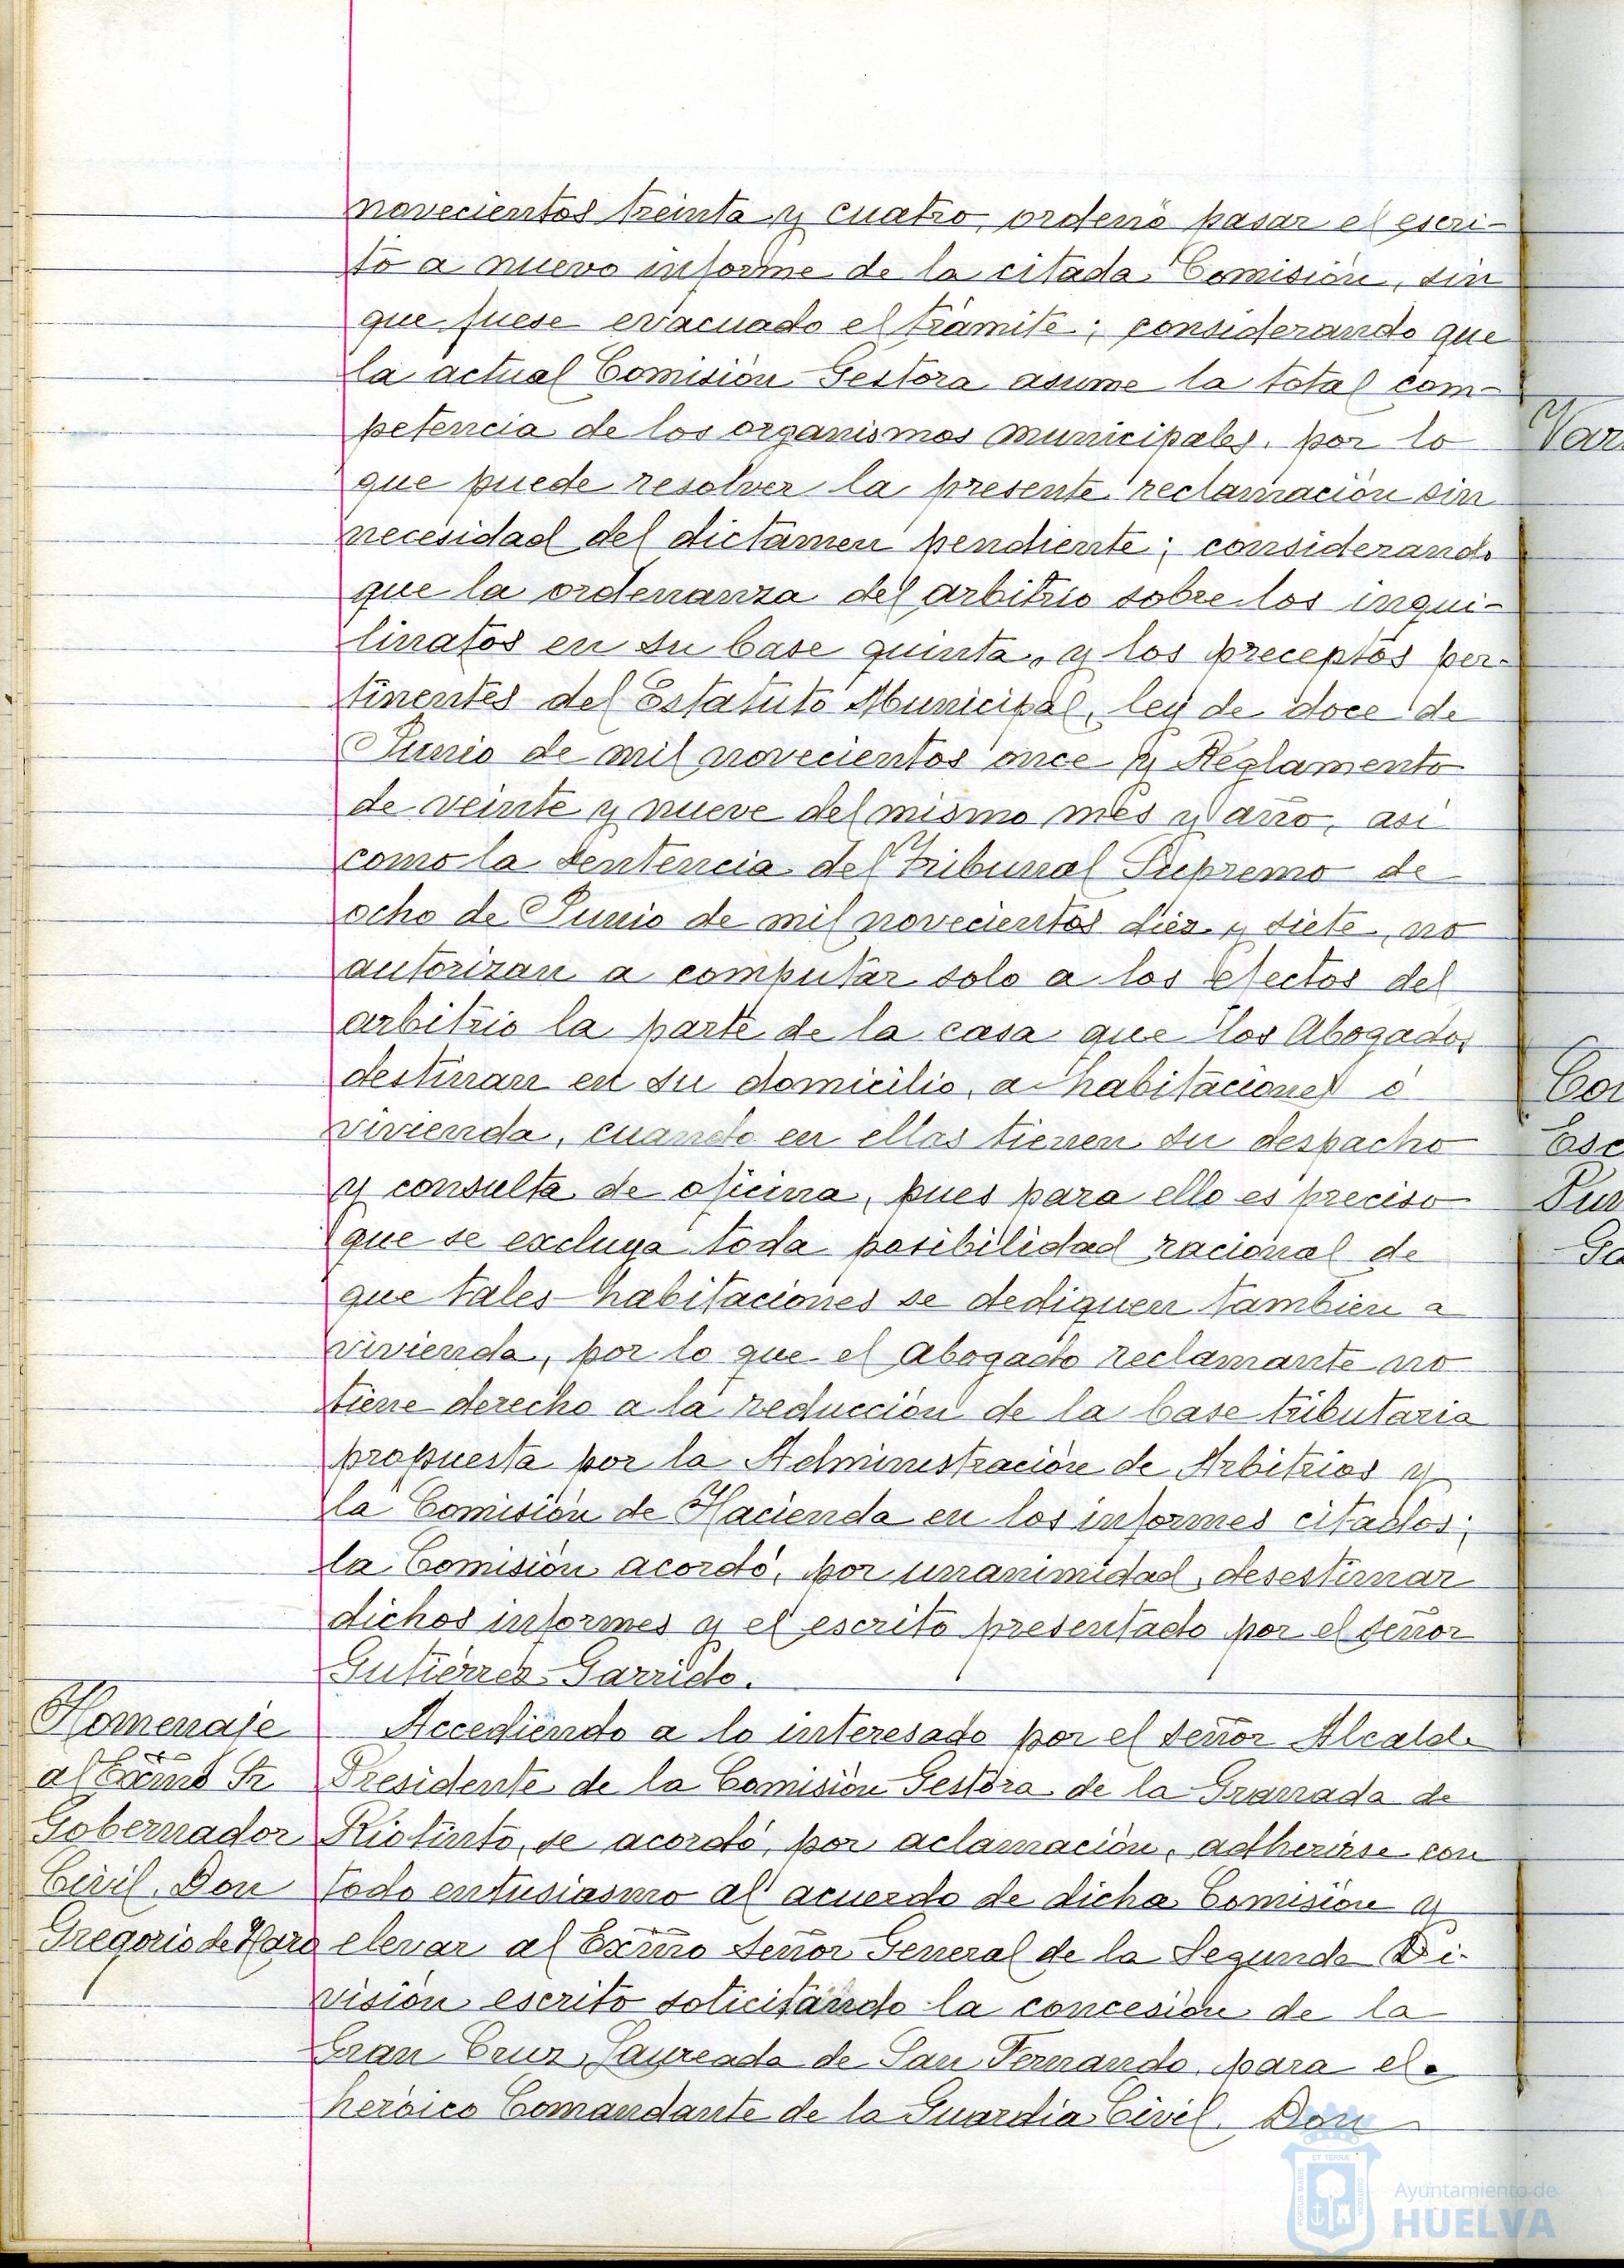 novecientos treinta y cuatro, ordenó pasar el escri-
to a nuevo informe de la citada Comisión, sin
que fuese evacuado el trámite; considerando que
la actual Comisión Gestora asume la total com-
petencia de los organismos municipales, por lo
que puede resolver la presente reclamación sin
necesidad del dictámen pendiente; considerando
que la ordenanza del arbitrio sobre los inqui-
linatos en su base quinta, y los preceptos per-
tinentes del Estatuto Municipal, ley de doce de
Junio de mil novecientos once y Reglamento
de veinte y nueve del mismo mes y año, así
como la sentencia del Tribunal Supremo de
ocho de Junio de mil novecientos diez y siete, no
autorizan a computar solo a los efectos del
arbitrio la parte de la casa que los Abogados
destinan en su domicilio, a habitaciones ó
vivienda, cuando en ellas tienen su despacho
y consulta de oficina, pues para ello es preciso
que se excluya toda posibilidad racional de
que tales habitaciones se dediquen tambien a
vivienda, por lo que el abogado reclamante no
tiene derecho a la reducción de la base tributaria
propuesta por la Administración de Arbitrios y
la Comisión de Hacienda en los informes citados;
la Comisión acordó, por unanimidad, desestimar
dichos informes y el escrito presentado por el señor
Gutiérrez Garrido.
Homenaje
al Excmo Sr
Gobernador
Civil, Don
Gregorio de Haro
Accediendo a lo interesado por el señor Alcalde
Presidente de la Comisión Gestora de la Granada de
Riotinto, se acordó, por aclamación, adherirse con
todo entusiasmo al acuerdo de dicha Comisión y
elevar al Excmo señor General de la Segunda Di-
visión escrito solicitando la concesión de la
Gran Cruz Laureada de San Fernando, para el
heróico Comandante de la Guardia Civil, Don
Ayuntamiento de
HUELVA